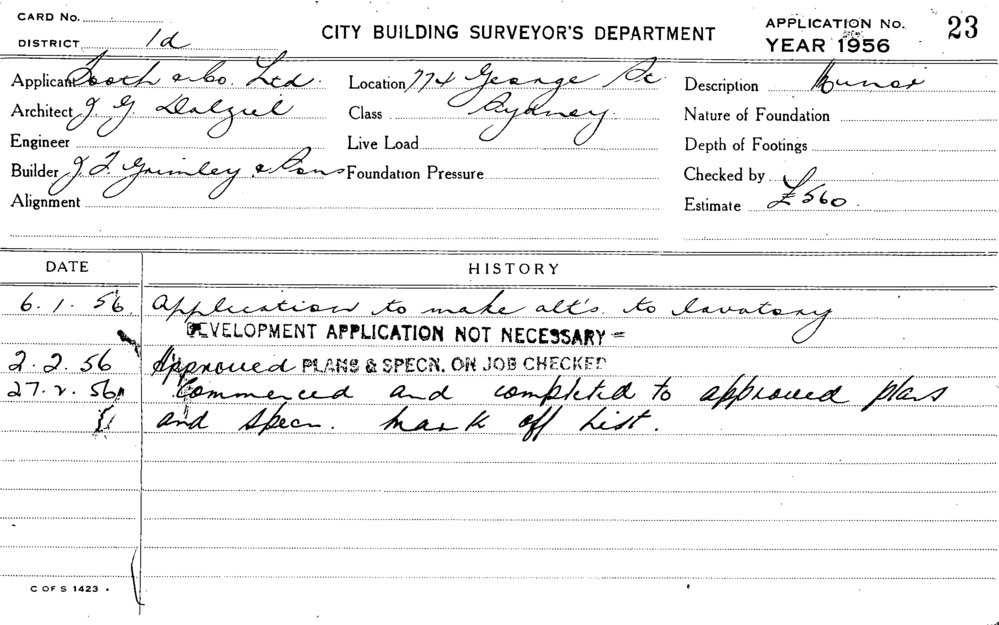 CARD No.
DISTRICT 1d
CITY BUILDING SURVEYOR'S DEPARTMENT
APPLICATION No. 23
YEAR 1956
Applicant Tooth & Co. Ltd.
Location 774 George St
Description Minor
Architect J. G. Dalziel
Class Sydney.
Nature of Foundation
Engineer
Live Load
Depth of Footings
Builder J. T. Grimley & Sons
Foundation Pressure
Checked by
Alignment
Estimate £560.
DATE
HISTORY
6.1.56. Application to make alt's. to lavatory
DEVELOPMENT APPLICATION NOT NECESSARY =
2.2.56 Approved PLANS & SPECN. ON JOB CHECKED
27.2.56 Commenced and completed to approved plans
and specn. Mark off List.
C OF S 1423